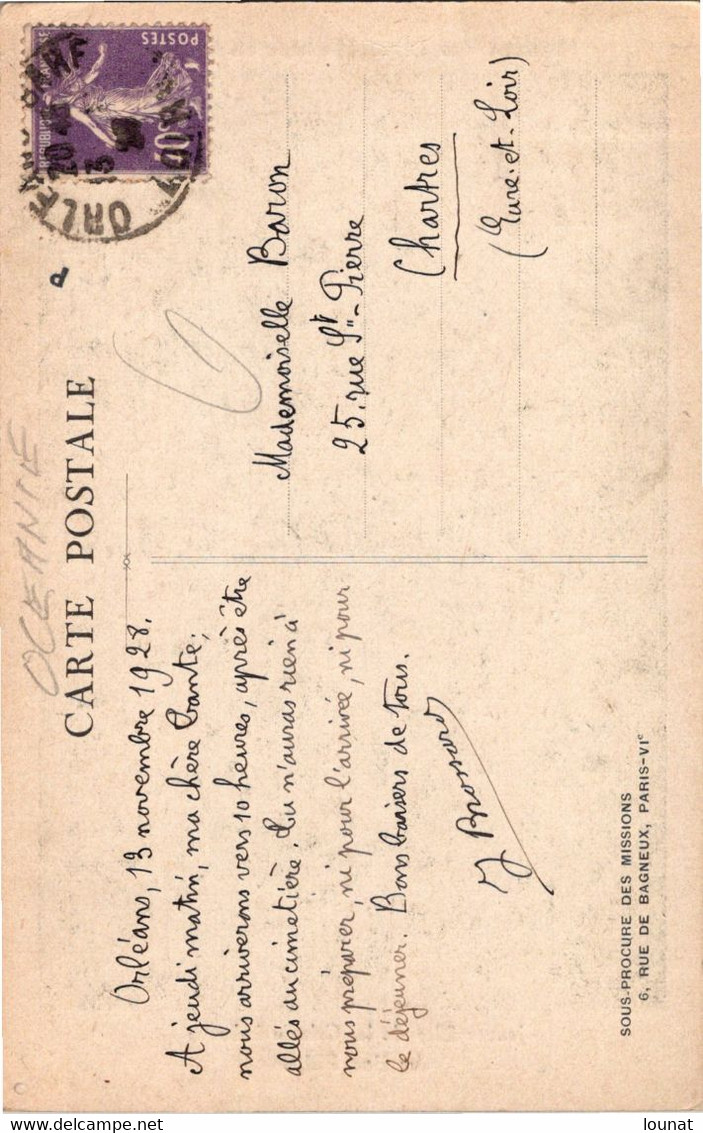 OCEANIE
CARTE POSTALE
Orléans, 13 novembre 1928.
A jeudi matin, ma chère tante;
nous arriverons vers 10 heures, après être
allés au cimetière. Tu n'auras rien à
nous préparer, ni pour l'arrivée, ni pour
le déjeuner. Bons baisers de tous.
J Brossard
SOUS-PROCURE DES MISSIONS
6, RUE DE BAGNEUX, PARIS-VIe
POSTES
REPUBLIQUE
40
ORLEANS
20
13
Mademoiselle Baron
25. rue St-Pierre
Chartres
(Eure-et-Loir)
lounat